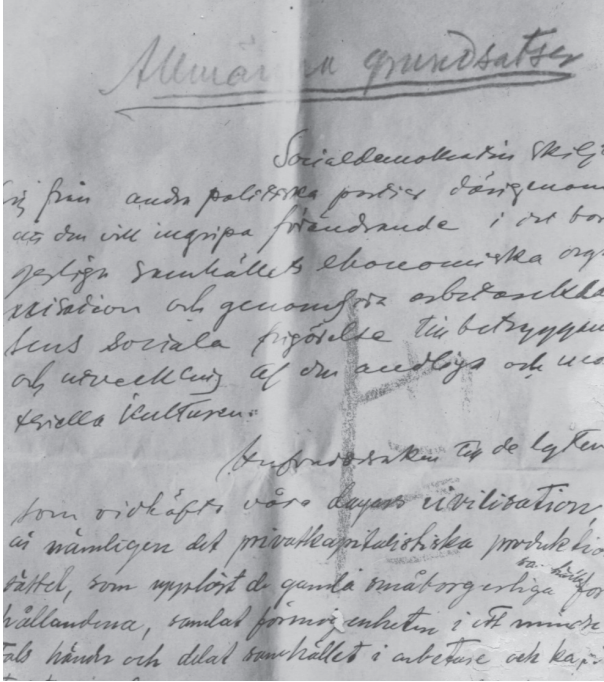 Allmänna grundsatser
Socialdemokratin skilj
sig från andra politiska partier därigenom
att den vill ingripa förändrande i det bor
gerliga samhällets ekonomiska orga
nisation och genomföra arbetareklas
sens sociala frigörelse till betryggan
och utveckling af den andliga och ma
teriella kulturen.
Hufvudorsaken till de lyten
som vidhäfta våra dagars civilisation,
är nämligen det privatkapitalistiska produktio
sättet, som upplöst de gamla småborgerliga för
hållandena, samlat förmögenheten i ett mindre
tals händer och delat samhället i arbetare och kapi